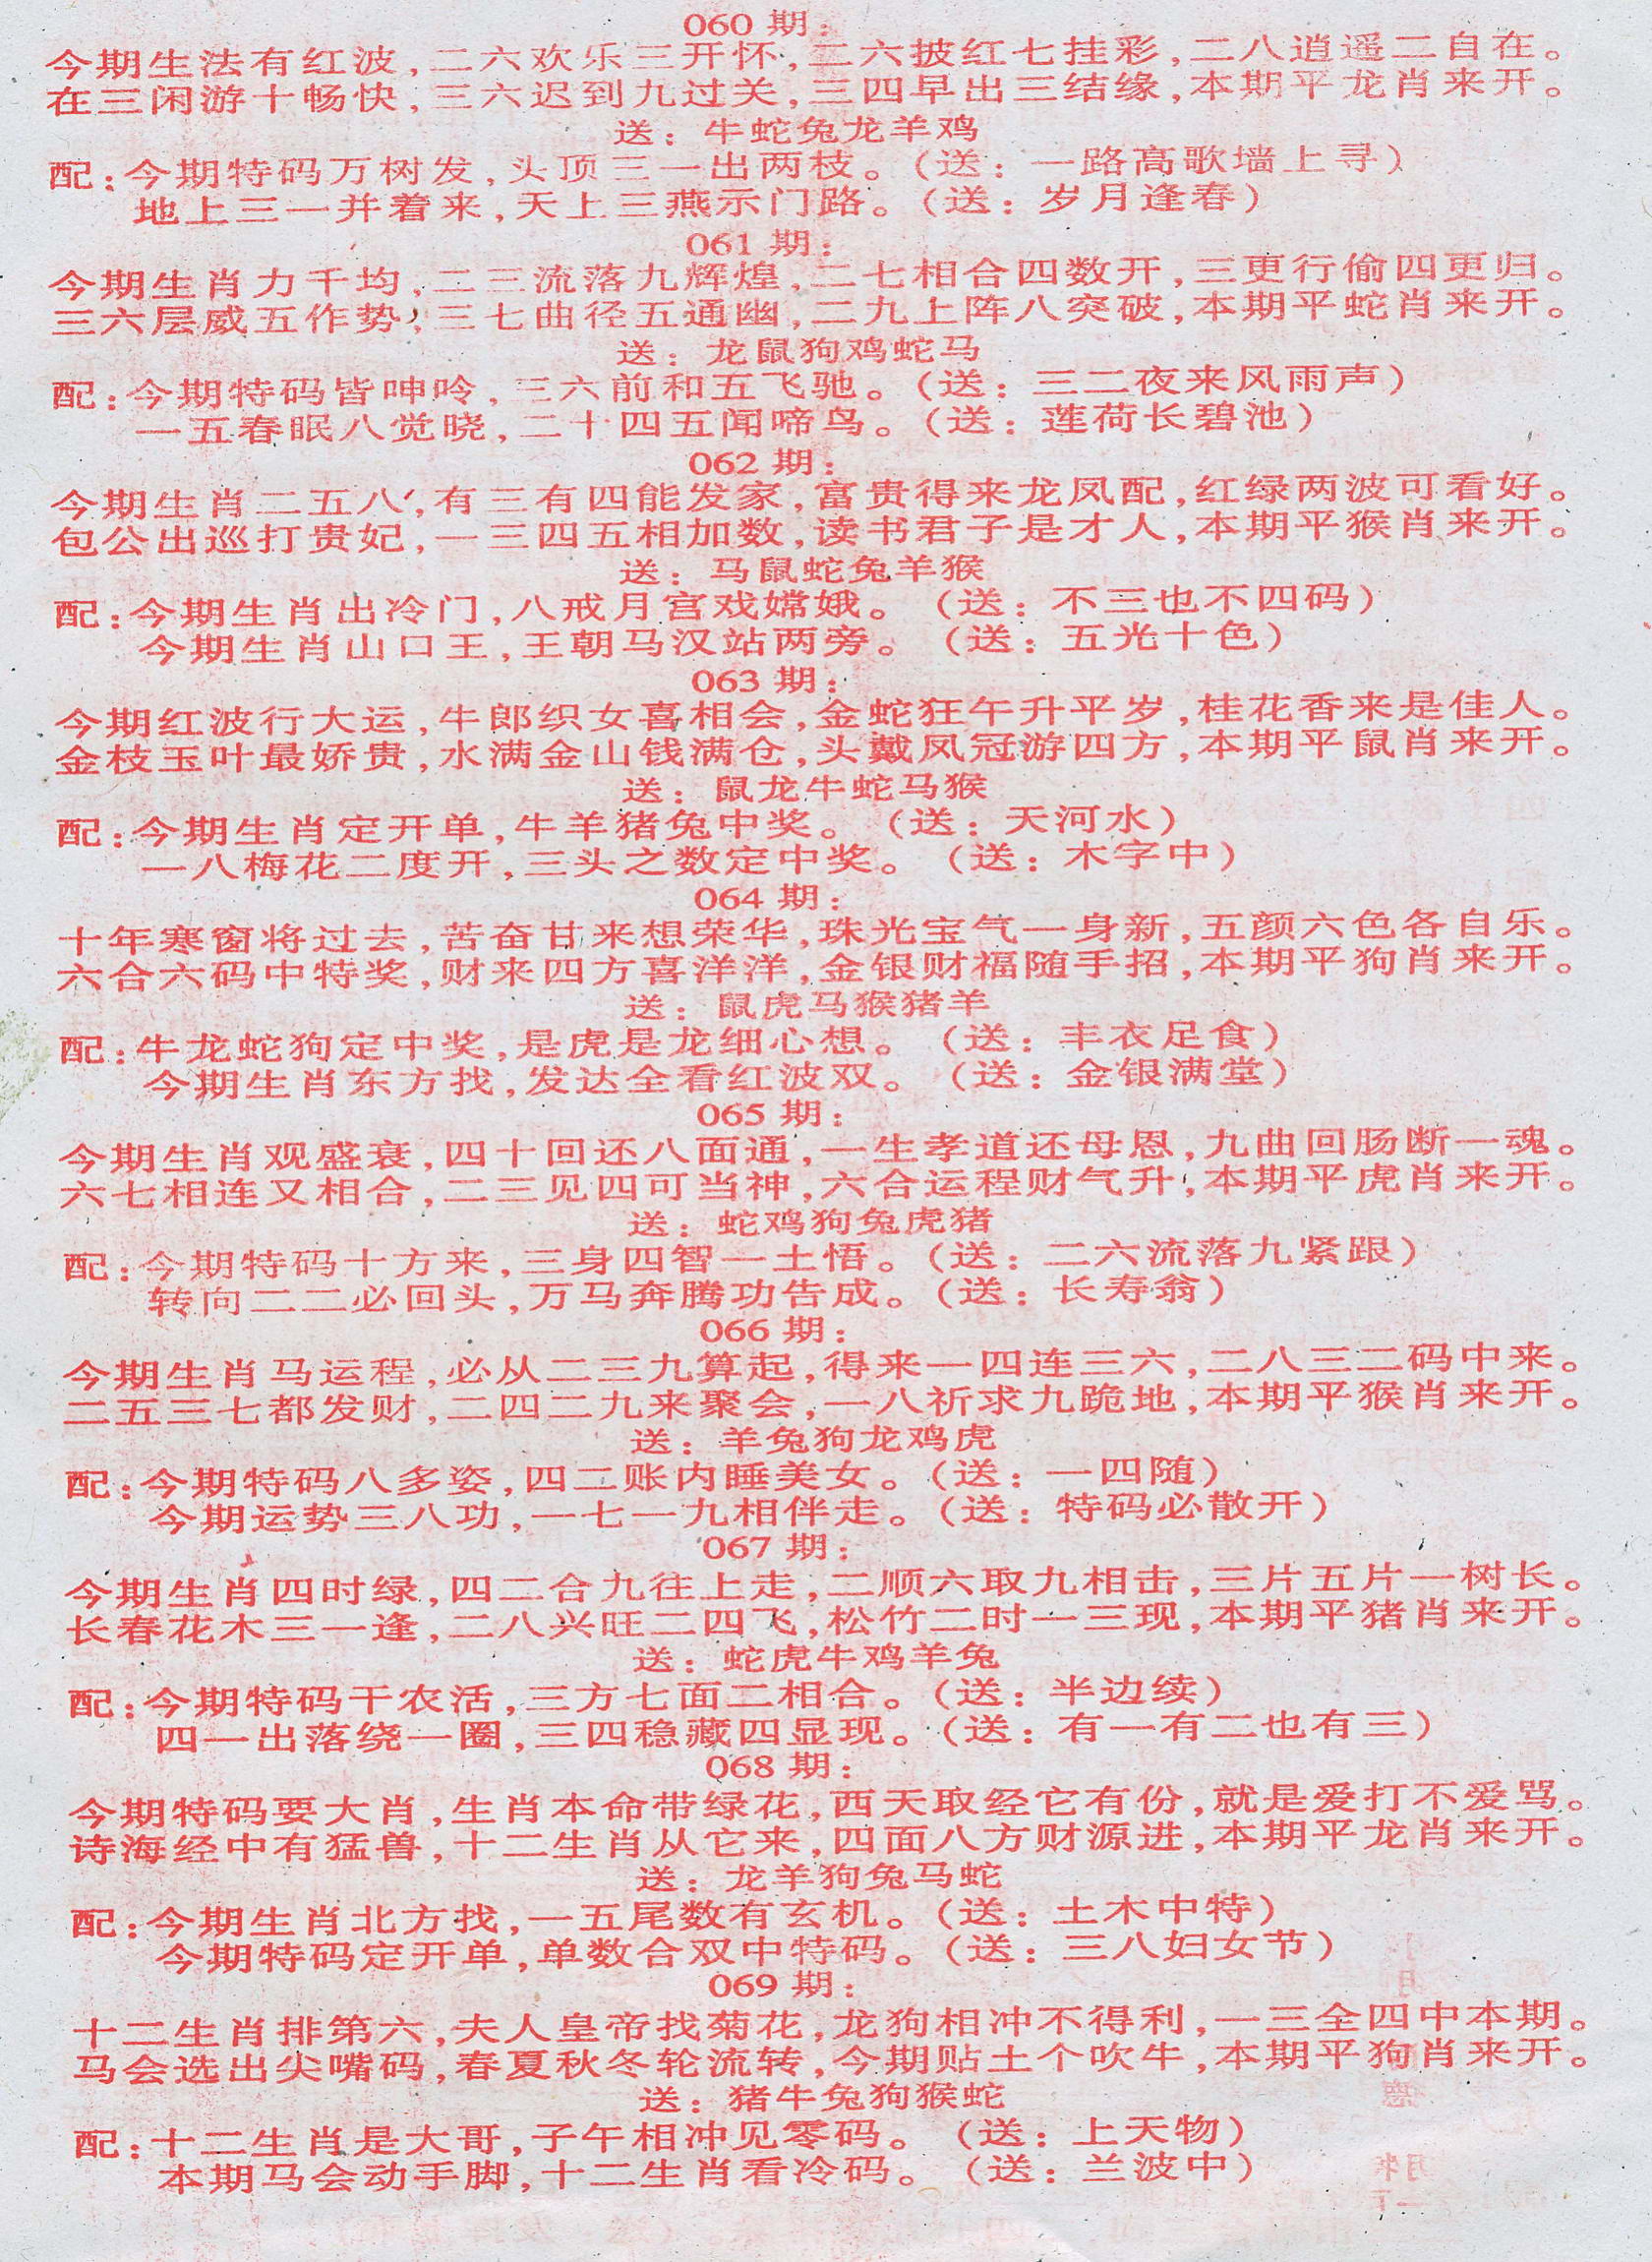 060 期：
今期生法有红波，二六欢乐三开怀，二六披红七挂彩，二八逍遥二自在。
在三闲游十畅快，三六迟到九过关，三四早出三结缘，本期平龙肖来开。
送：牛蛇兔龙羊鸡
配：今期特码万树发，头顶三一出两枝。（送：一路高歌墙上寻）
地上三一并着来，天上三燕示门路。（送：岁月逢春）
061 期：
今期生肖力千均，二三流落九辉煌，二七相合四数开，三更行偷四更归。
三六层威五作势，三七曲径五通幽，二九上阵八突破，本期平蛇肖来开。
送：龙鼠狗鸡蛇马
配：今期特码皆呻呤，三六前和五飞驰。（送：三二夜来风雨声）
一五春眠八觉晓，二十四五闻啼鸟。（送：莲荷长碧池）
062 期：
今期生肖二五八，有三有四能发家，富贵得来龙凤配，红绿两波可看好。
包公出巡打贵妃，一三四五相加数，读书君子是才人，本期平猴肖来开。
送：马鼠蛇兔羊猴
配：今期生肖出冷门，八戒月宫戏嫦娥。（送：不三也不四码）
今期生肖山口王，王朝马汉站两旁。（送：五光十色）
063 期：
今期红波行大运，牛郎织女喜相会，金蛇狂午升平岁，桂花香来是佳人。
金枝玉叶最娇贵，水满金山钱满仓，头戴凤冠游四方，本期平鼠肖来开。
送：鼠龙牛蛇马猴
配：今期生肖定开单，牛羊猪兔中奖。（送：天河水）
一八梅花二度开，三头之数定中奖。（送：木字中）
064 期：
十年寒窗将过去，苦奋甘来想荣华，珠光宝气一身新，五颜六色各自乐。
六合六码中特奖，财来四方喜洋洋，金银财福随手招，本期平狗肖来开。
送：鼠虎马猴猪羊
配：牛龙蛇狗定中奖，是虎是龙细心想。（送：丰衣足食）
今期生肖东方找，发达全看红波双。（送：金银满堂）
065 期：
今期生肖观盛衰，四十回还八面通，一生孝道还母恩，九曲回肠断一魂。
六七相连又相合，二三见四可当神，六合运程财气升，本期平虎肖来开。
送：蛇鸡狗兔虎猪
配：今期特码十方来，三身四智一土悟。（送：二六流落九紧跟）
转向二二必回头，万马奔腾功告成。（送：长寿翁）
066 期：
今期生肖马运程，必从二三九算起，得来一四连三六，二八三二码中来。
二五三七都发财，二四二九来聚会，一八祈求九跪地，本期平猴肖来开。
送：羊兔狗龙鸡虎
配：今期特码八多姿，四二账内睡美女。（送：一四随）
今期运势三八功，一七一九相伴走。（送：特码必散开）
067 期：
今期生肖四时绿，四二合九往上走，二顺六取九相击，三片五片一树长。
长春花木三一逢，二八兴旺二四飞，松竹二时一三现，本期平猪肖来开。
送：蛇虎牛鸡羊兔
配：今期特码干农活，三方七面二相合。（送：半边续）
四一出落绕一圈，三四稳藏四显现。（送：有一有二也有三）
068 期：
今期特码要大肖，生肖本命带绿花，西天取经它有份，就是爱打不爱骂。
诗海经中有猛兽，十二生肖从它来，四面八方财源进，本期平龙肖来开。
送：龙羊狗兔马蛇
配：今期生肖北方找，一五尾数有玄机。（送：土木中特）
今期特码定开单，单数合双中特码。（送：三八妇女节）
069 期：
十二生肖排第六，夫人皇帝找菊花，龙狗相冲不得利，一三全四中本期。
马会选出尖嘴码，春夏秋冬轮流转，今期贴土个吹牛，本期平狗肖来开。
送：猪牛兔狗猴蛇
配：十二生肖是大哥，子午相冲见零码。（送：上天物）
本期马会动手脚，十二生肖看冷码。（送：兰波中）